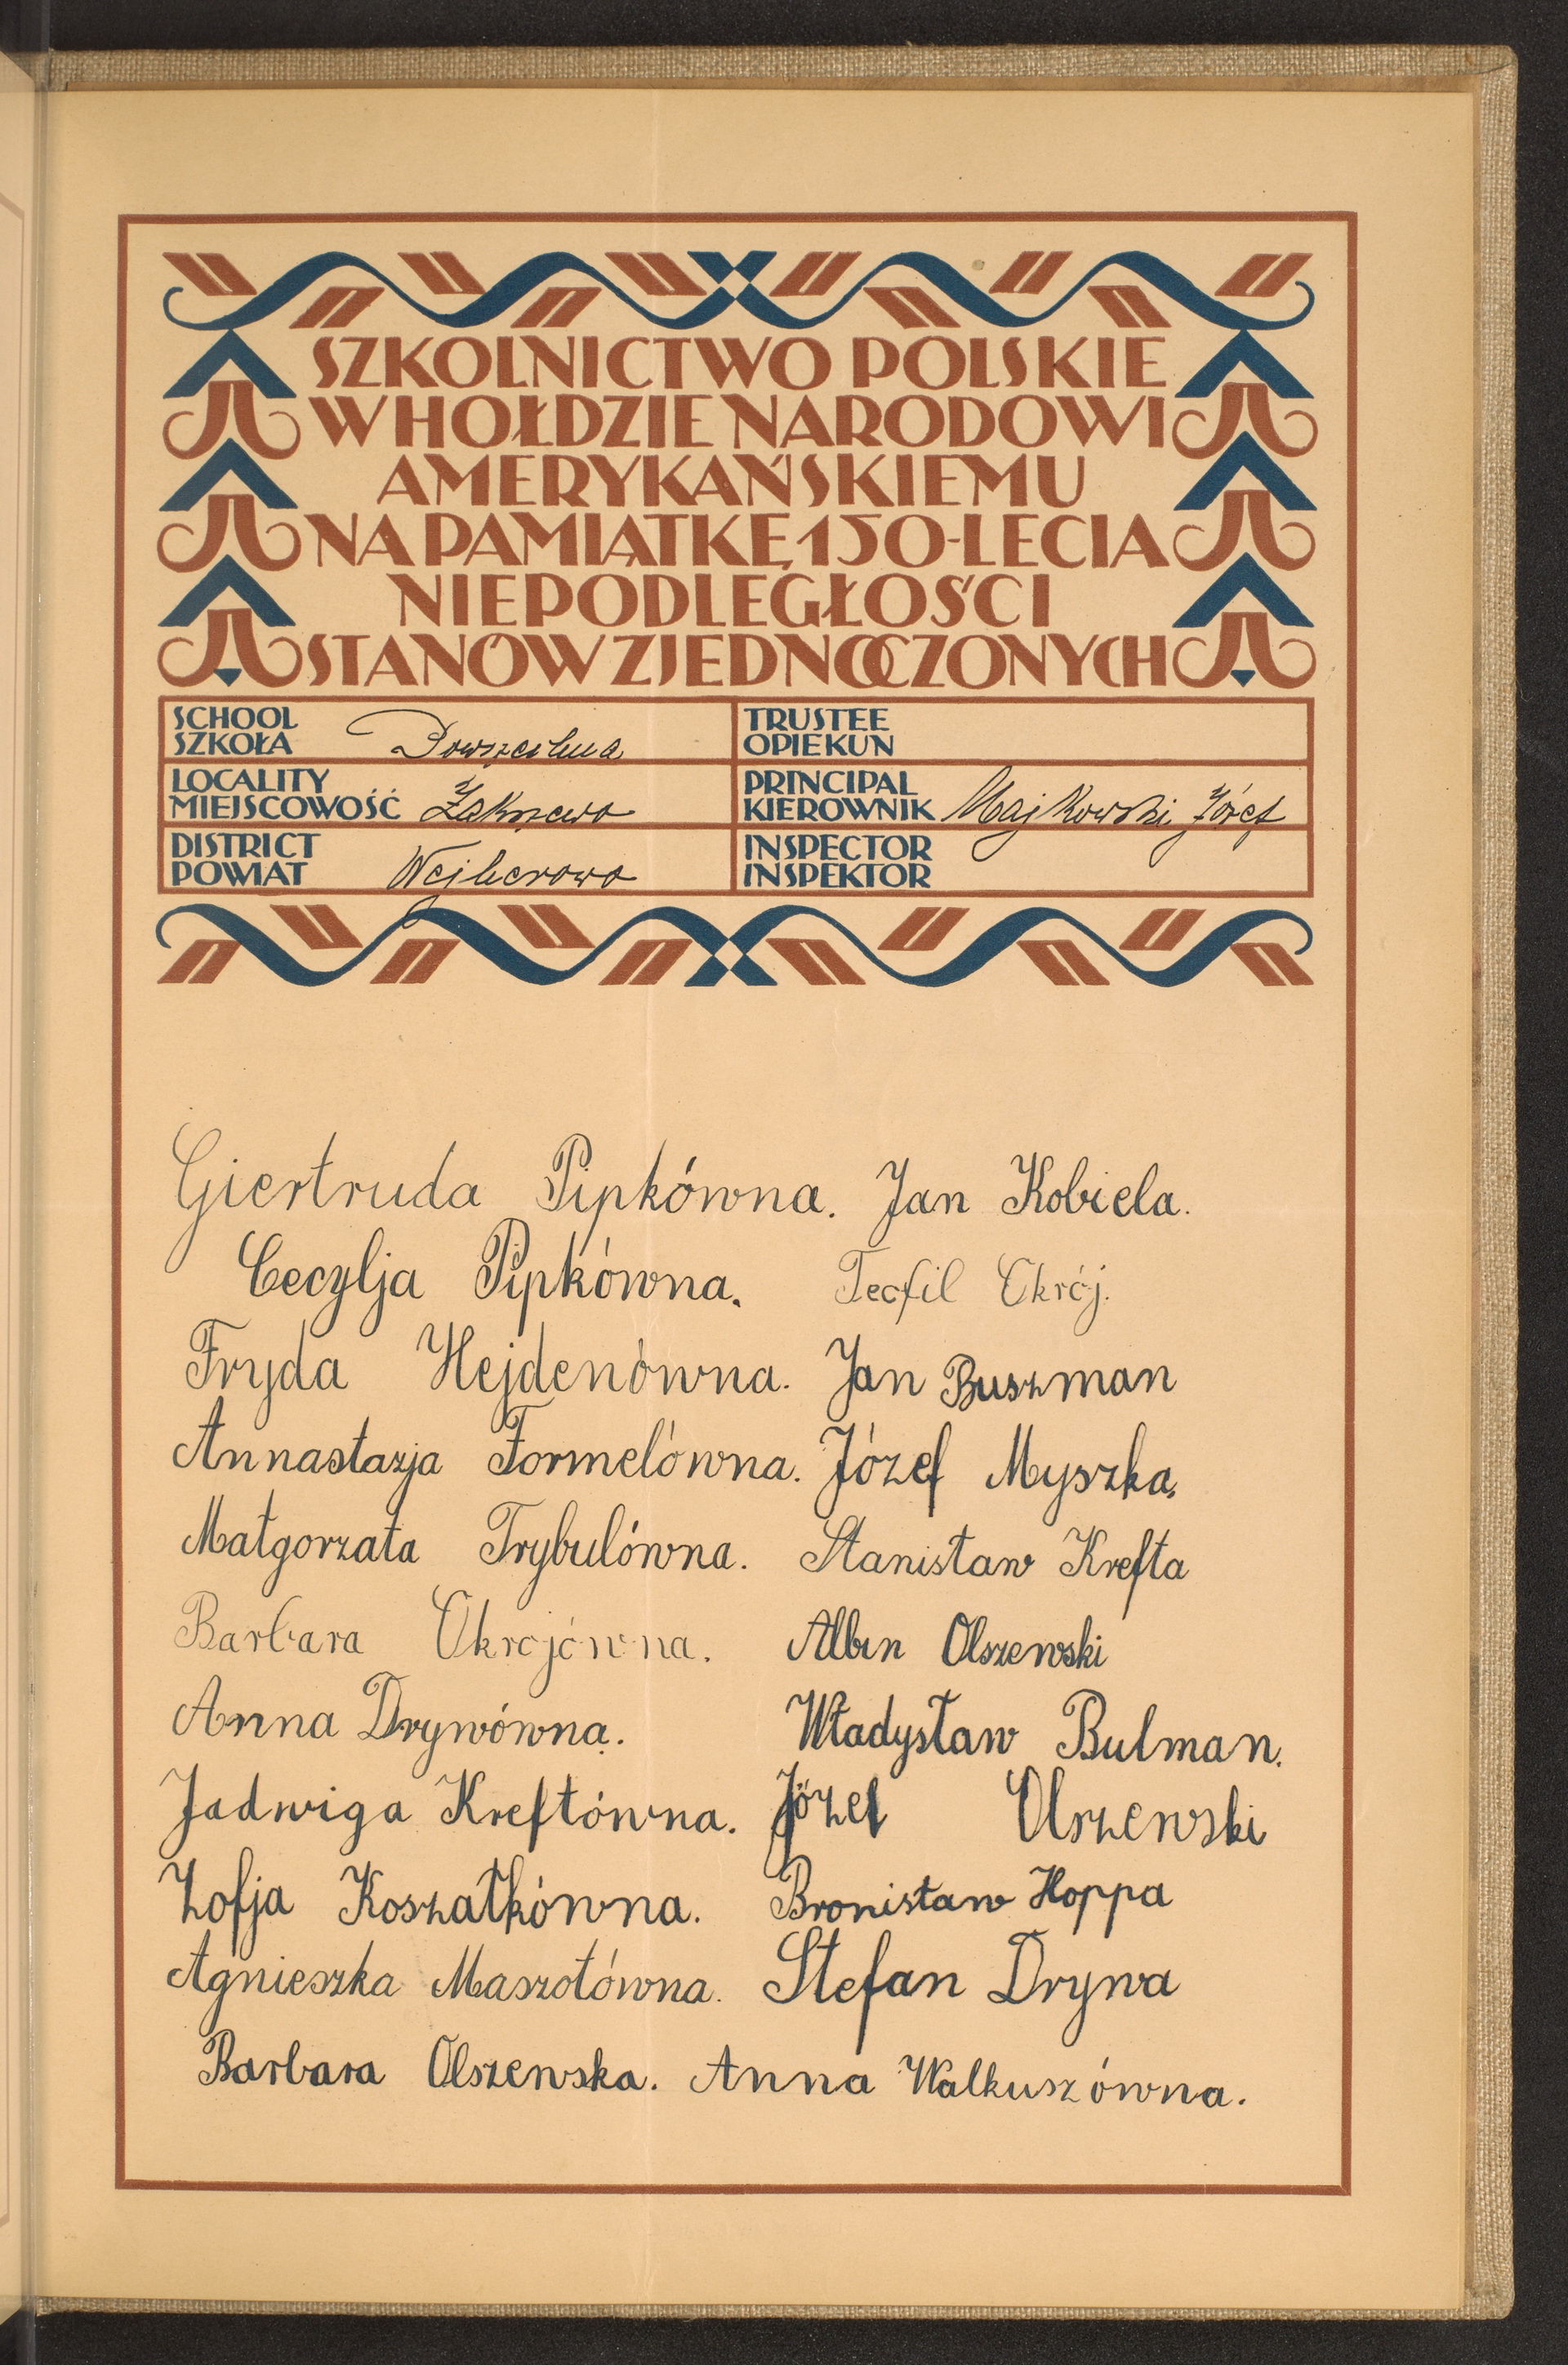 SZKOLNICTWO POLSKIE
W HOŁDZIE NARODOWI
AMERYKAŃSKIEMU
NA PAMIĄTKĘ 150-LECIA
NIEPODLEGŁOŚCI
STANÓW ZJEDNOCZONYCH
SCHOOL
SZKOŁA Powszechna
TRUSTEE
OPIEKUN
LOCALITY
MIEJSCOWOŚĆ
PRINCIPAL
KIEROWNIK Majkowski Józef
DISTRICT
POWIAT Wejherowo
INSPECTOR
INSPEKTOR
Giertruda Pipkówna. Jan Kobiela.
Cecylja Pipkówna. Teofil Okrój.
Fryda Hejdenówna. Jan Buszman
Annastazja Formelówna. Józef Myszka.
Małgorzata Trybulówna. Stanisław Krefta
Barbara Okrojówna. Albin Olszewski
Anna Drywówna. Władysław Bulman.
Jadwiga Kreftówna. Józef Olszewski
Zofja Koszałkówna. Bronisław Hoppa
Agnieszka Maszotówna. Stefan Drywa
Barbara Olszewska. Anna Walkuszówna.